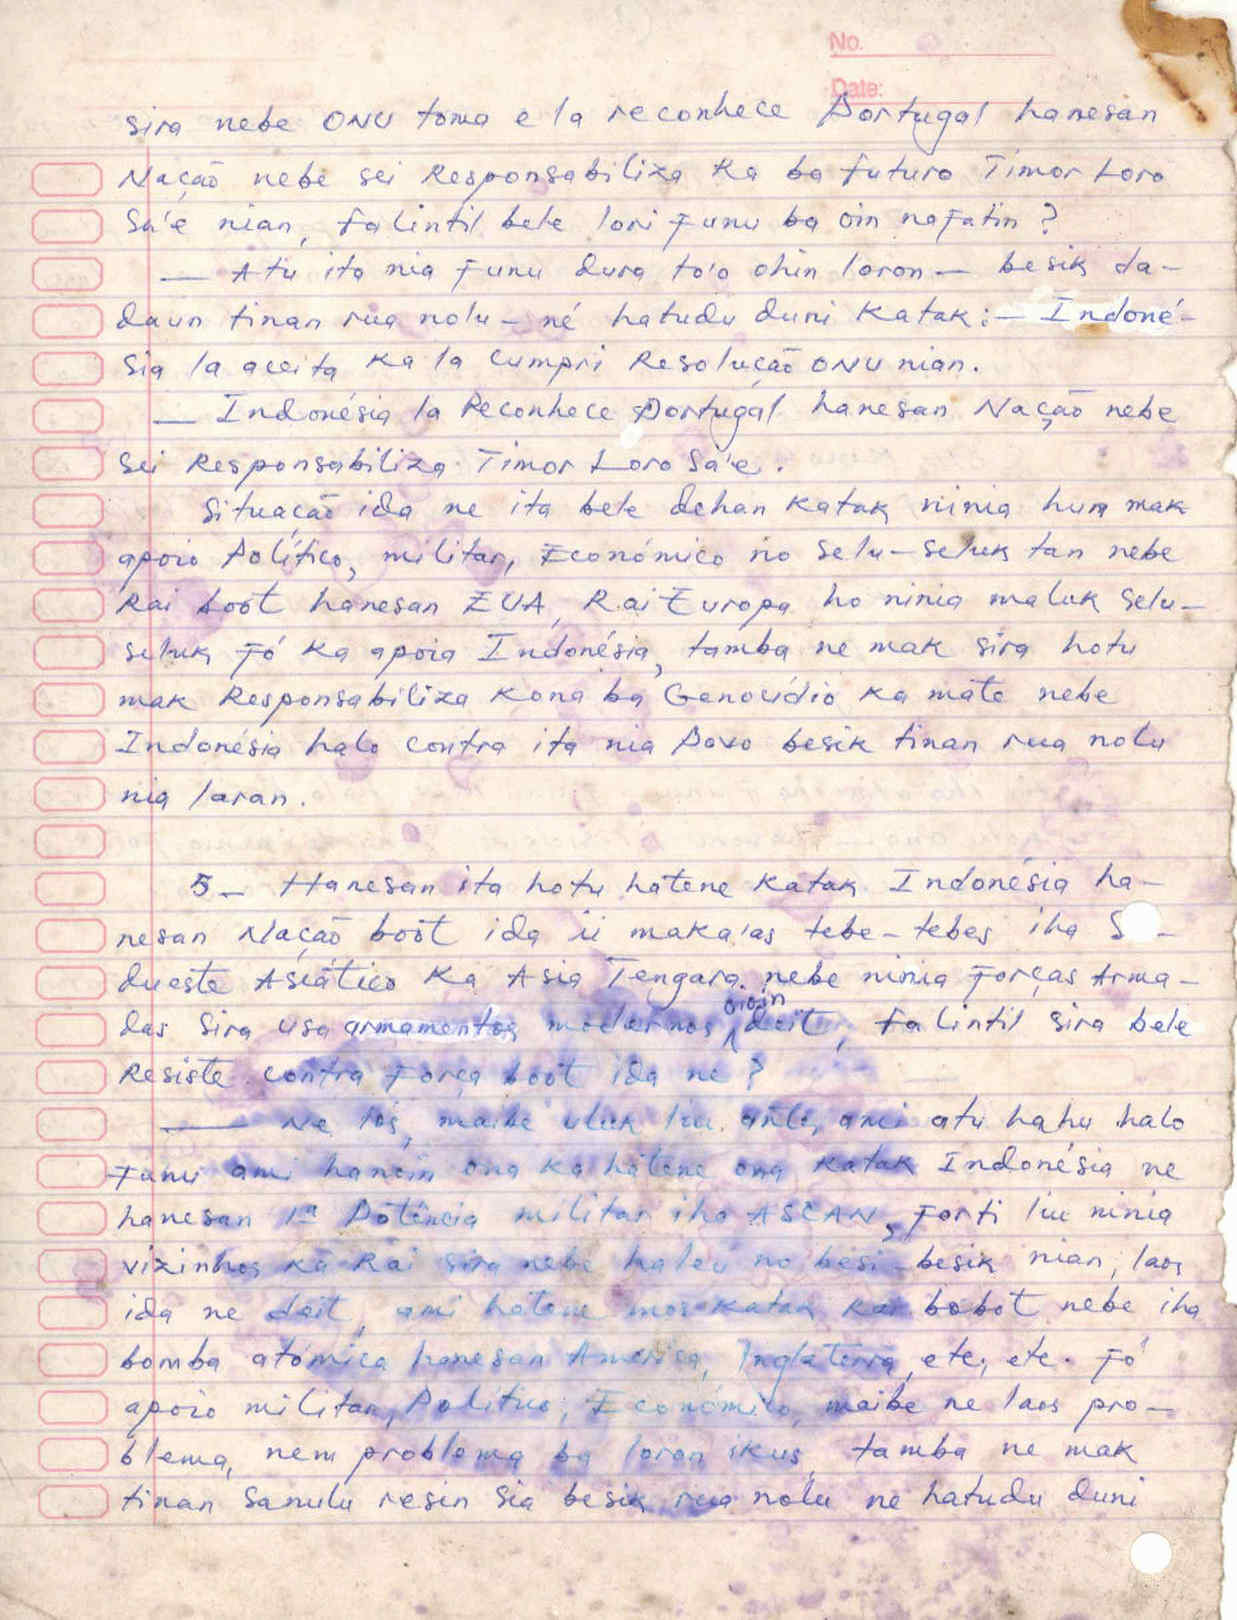 No.
Date:
sira nebe ONU toma e la reconhece Portugal hanesan
Nação nebe sei Responsabiliza ka ba futuro Timor Loro
Sa'e nian, falintil bele lori funu ba oin nafatin?
— Atu ita nia funu dura to'o ohin loron — besik da-
daun tinan rua nolu - né hatudu duni katak: — Indoné-
sia la aceita ka la cumpri Resolução ONU nian.
— Indonésia la Reconhece Portugal hanesan Nação nebe
sei Responsabiliza Timor Loro Sa'e.
Situação ida ne ita bele dehan katak ninia hun mak
apoio Político, militar, Económico no selu-seluk tan nebe
Rai boot hanesan EUA, Rai Europa ho ninia maluk selu-
seluk fó ka apoia Indonésia, tamba ne mak sira hotu
mak Responsabiliza kona ba Genocídio ka mate nebe
Indonésia halo contra ita nia Povo besik tinan rua nolu
nia laran.
5- Hanesan ita hotu hatene katak Indonésia ha-
nesan Nação boot ida ii maka'as tebe-tebes iha S -
dueste Asiático ka Asia Tengara nebe ninia Forças Arma-
das sira usa armamentos modernos oioin deit, falintil sira bele
Resiste contra Força boot ida ne?
— Ne los, maibe uluk liu antes ami atu hahu halo
funu ami hanoin ona ka hatene ona katak Indonésia ne
hanesan 1ª Potência militar iha ASEAN, forti liu ninia
vizinhos ka Rai sira nebe haleu no besi-besik nian, laos
ida ne deit, ami hatene mos katak kar bobot nebe iha
bomba atómica hanesan America, Inglaterra, etc, etc. Fó
apoio militar, Político, Económico, maibe ne laos pro-
blema, nem problema ba loron ikus, tamba ne mak
tinan sanulu resin sia besik rua nolu ne hatudu duni